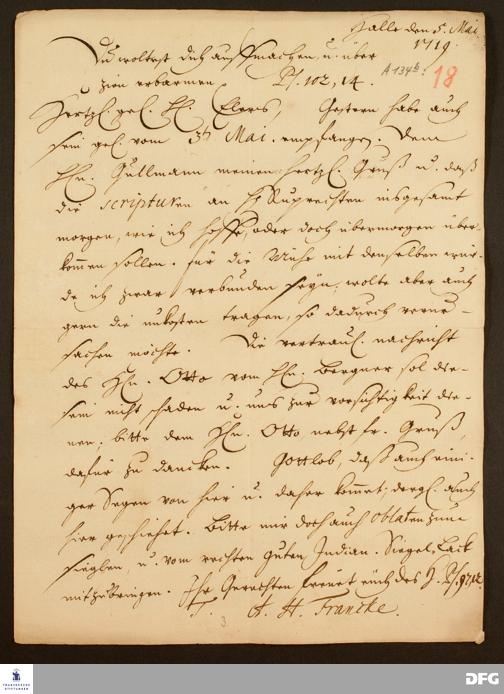 Halle den 5. Mai.
1719.
Du wollest dich auffmachen, u. über
Zion erbarmen Ps. 102, 14.
A 134b:
18
Hertzl. gel. H. Elers, Gestern habe auch
sein gel. vom 3t Mai. empfangen. Dem
Hn. Gullmann meinen hertzl. Gruß u. daß
die scripturen an H. Ruprechten insgesamt
morgen, wie ich hoffe, oder doch übermorgen über-
kommen sollen. für die Mühe mit denselben wür-
de ich zwar verbunden seyn, wolte aber auch
gern die unkosten tragen, so dadurch verur-
sachen möchte. Die vertraul. nachricht
des Hn. Otto vom Hn. Bergner sol die-
sem nicht schaden u. uns zur vorsichtigkeit die-
nen; bitte dem Hn. Otto, nebst fr. Gruß,
dafür zu dancken. Gottlob, daß auch eini-
ger Segen von hier u. daher kommet; dergl. auch
hier geschiehet. Bitte mir doch auch oblaten zum
sieglen, u. vom rechten guten Indian. Siegel-Lack
mitzubringen. Ihr Gerechten freuet euch des H. Ps. 97, 12.
A. H. Francke.
3
FRANCKESCHE
STIFTUNGEN
DFG